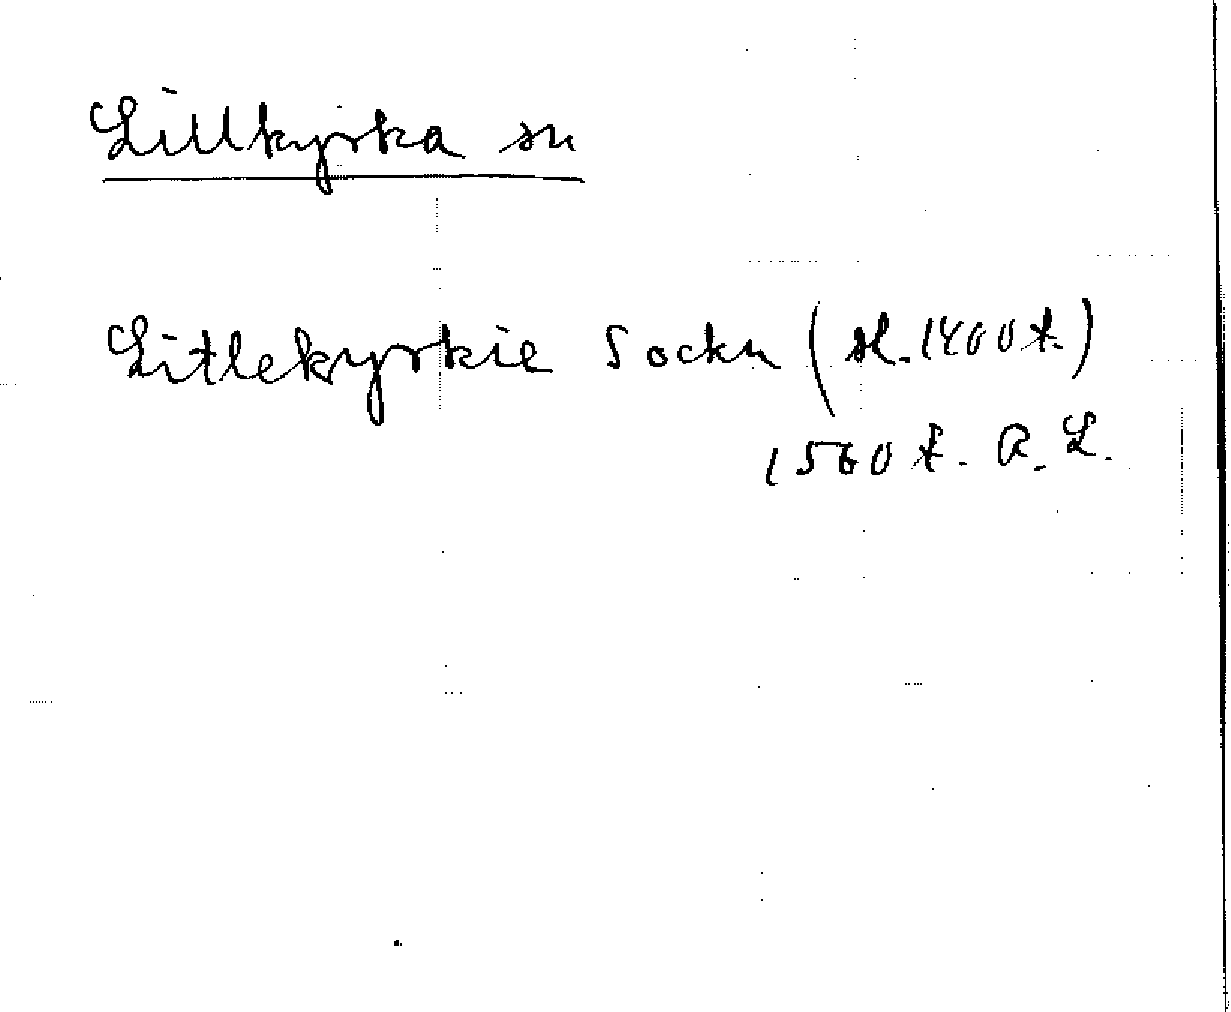 Lillkyrka sn
Litlekyrkie Sockn (sl. 1400 t.)
1560 t. R. L.